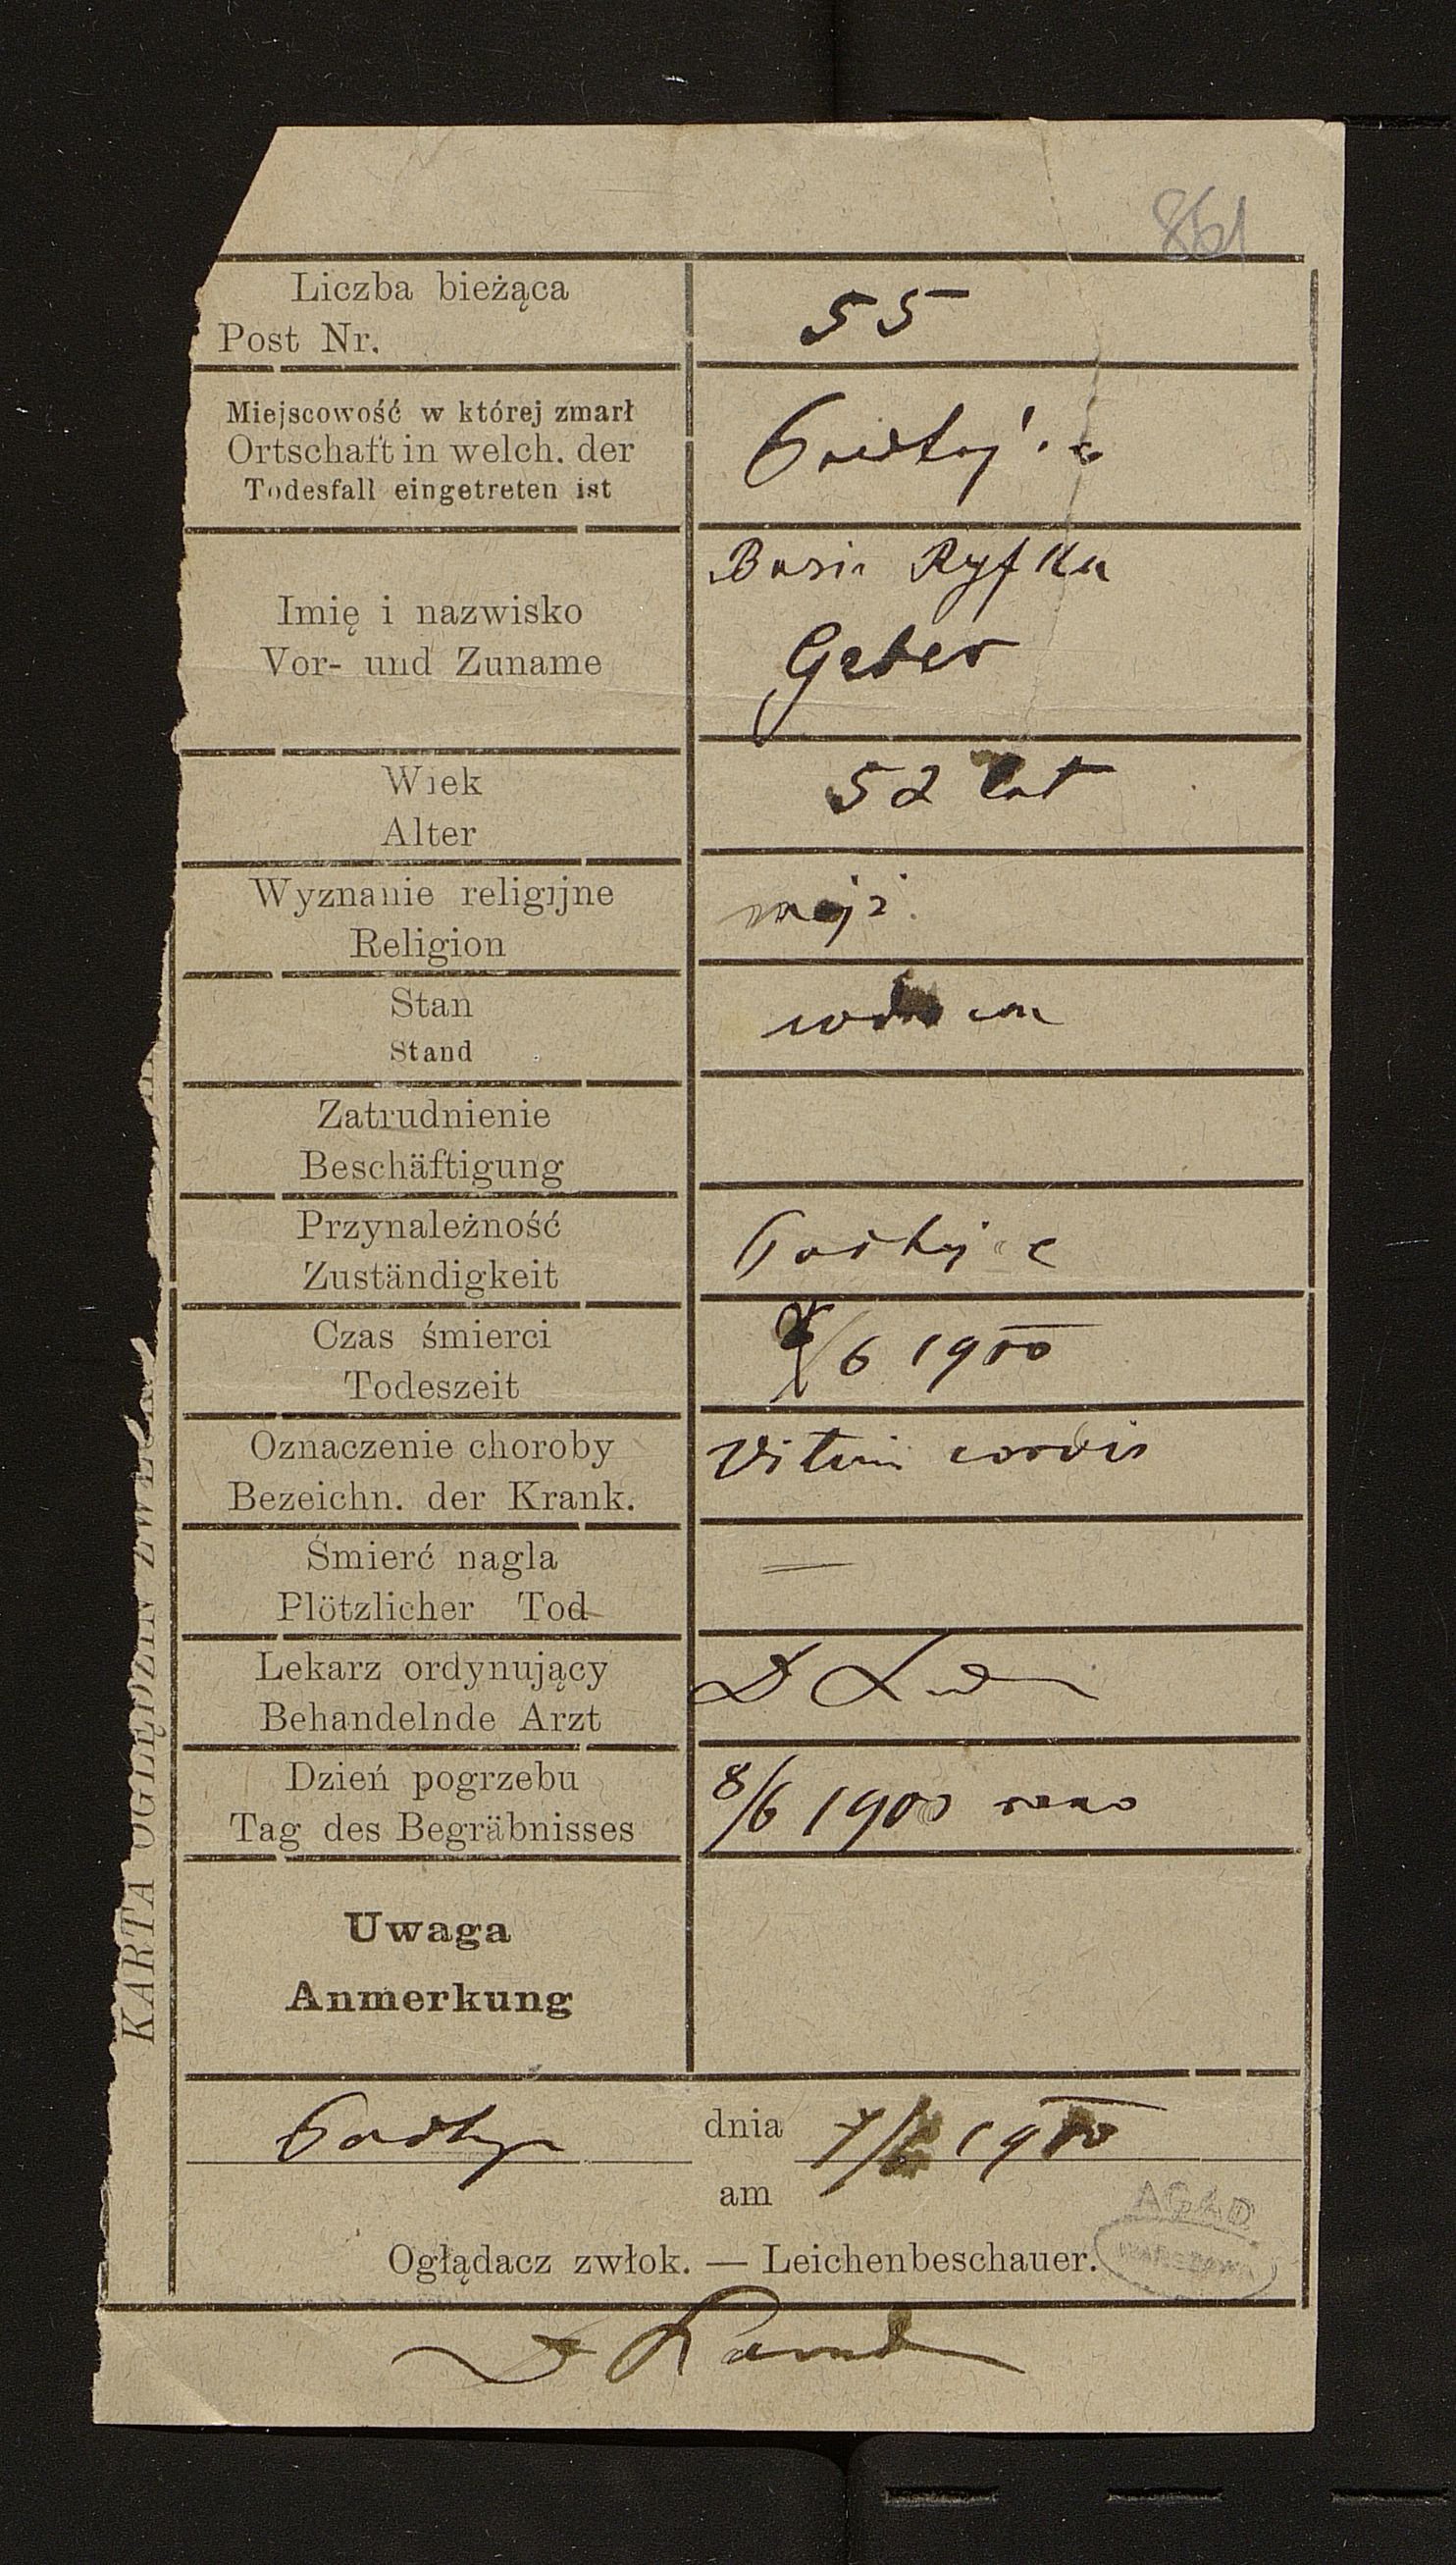 861
Liczba bieżąca
Post Nr.
55
Miejscowość w której zmarł
Ortschaft in welch. der
Todesfall eingetreten ist
Imię i nazwisko
Vor- und Zuname
Basie Ryfka
Geber
Wiek
Alter
52 lat
Wyznanie religijne
Religion
mojż.
Stan
Stand
wdowa
Zatrudnienie
Beschäftigung
Przynależność
Zuständigkeit
Czas śmierci
Todeszeit
7/6 1900
Oznaczenie choroby
Bezeichn. der Krank.
Vitium cordis
Śmierć nagla
Plötzlicher Tod
Lekarz ordynujący
Behandelnde Arzt
Dzień pogrzebu
Tag des Begräbnisses
8/6 1900 rano
Uwaga
Anmerkung
dnia 7/6 1900
am
AGAD
WARSZAWA
Oglądacz zwłok. — Leichenbeschauer.
KARTA OGLĘDZIN ZWŁOK